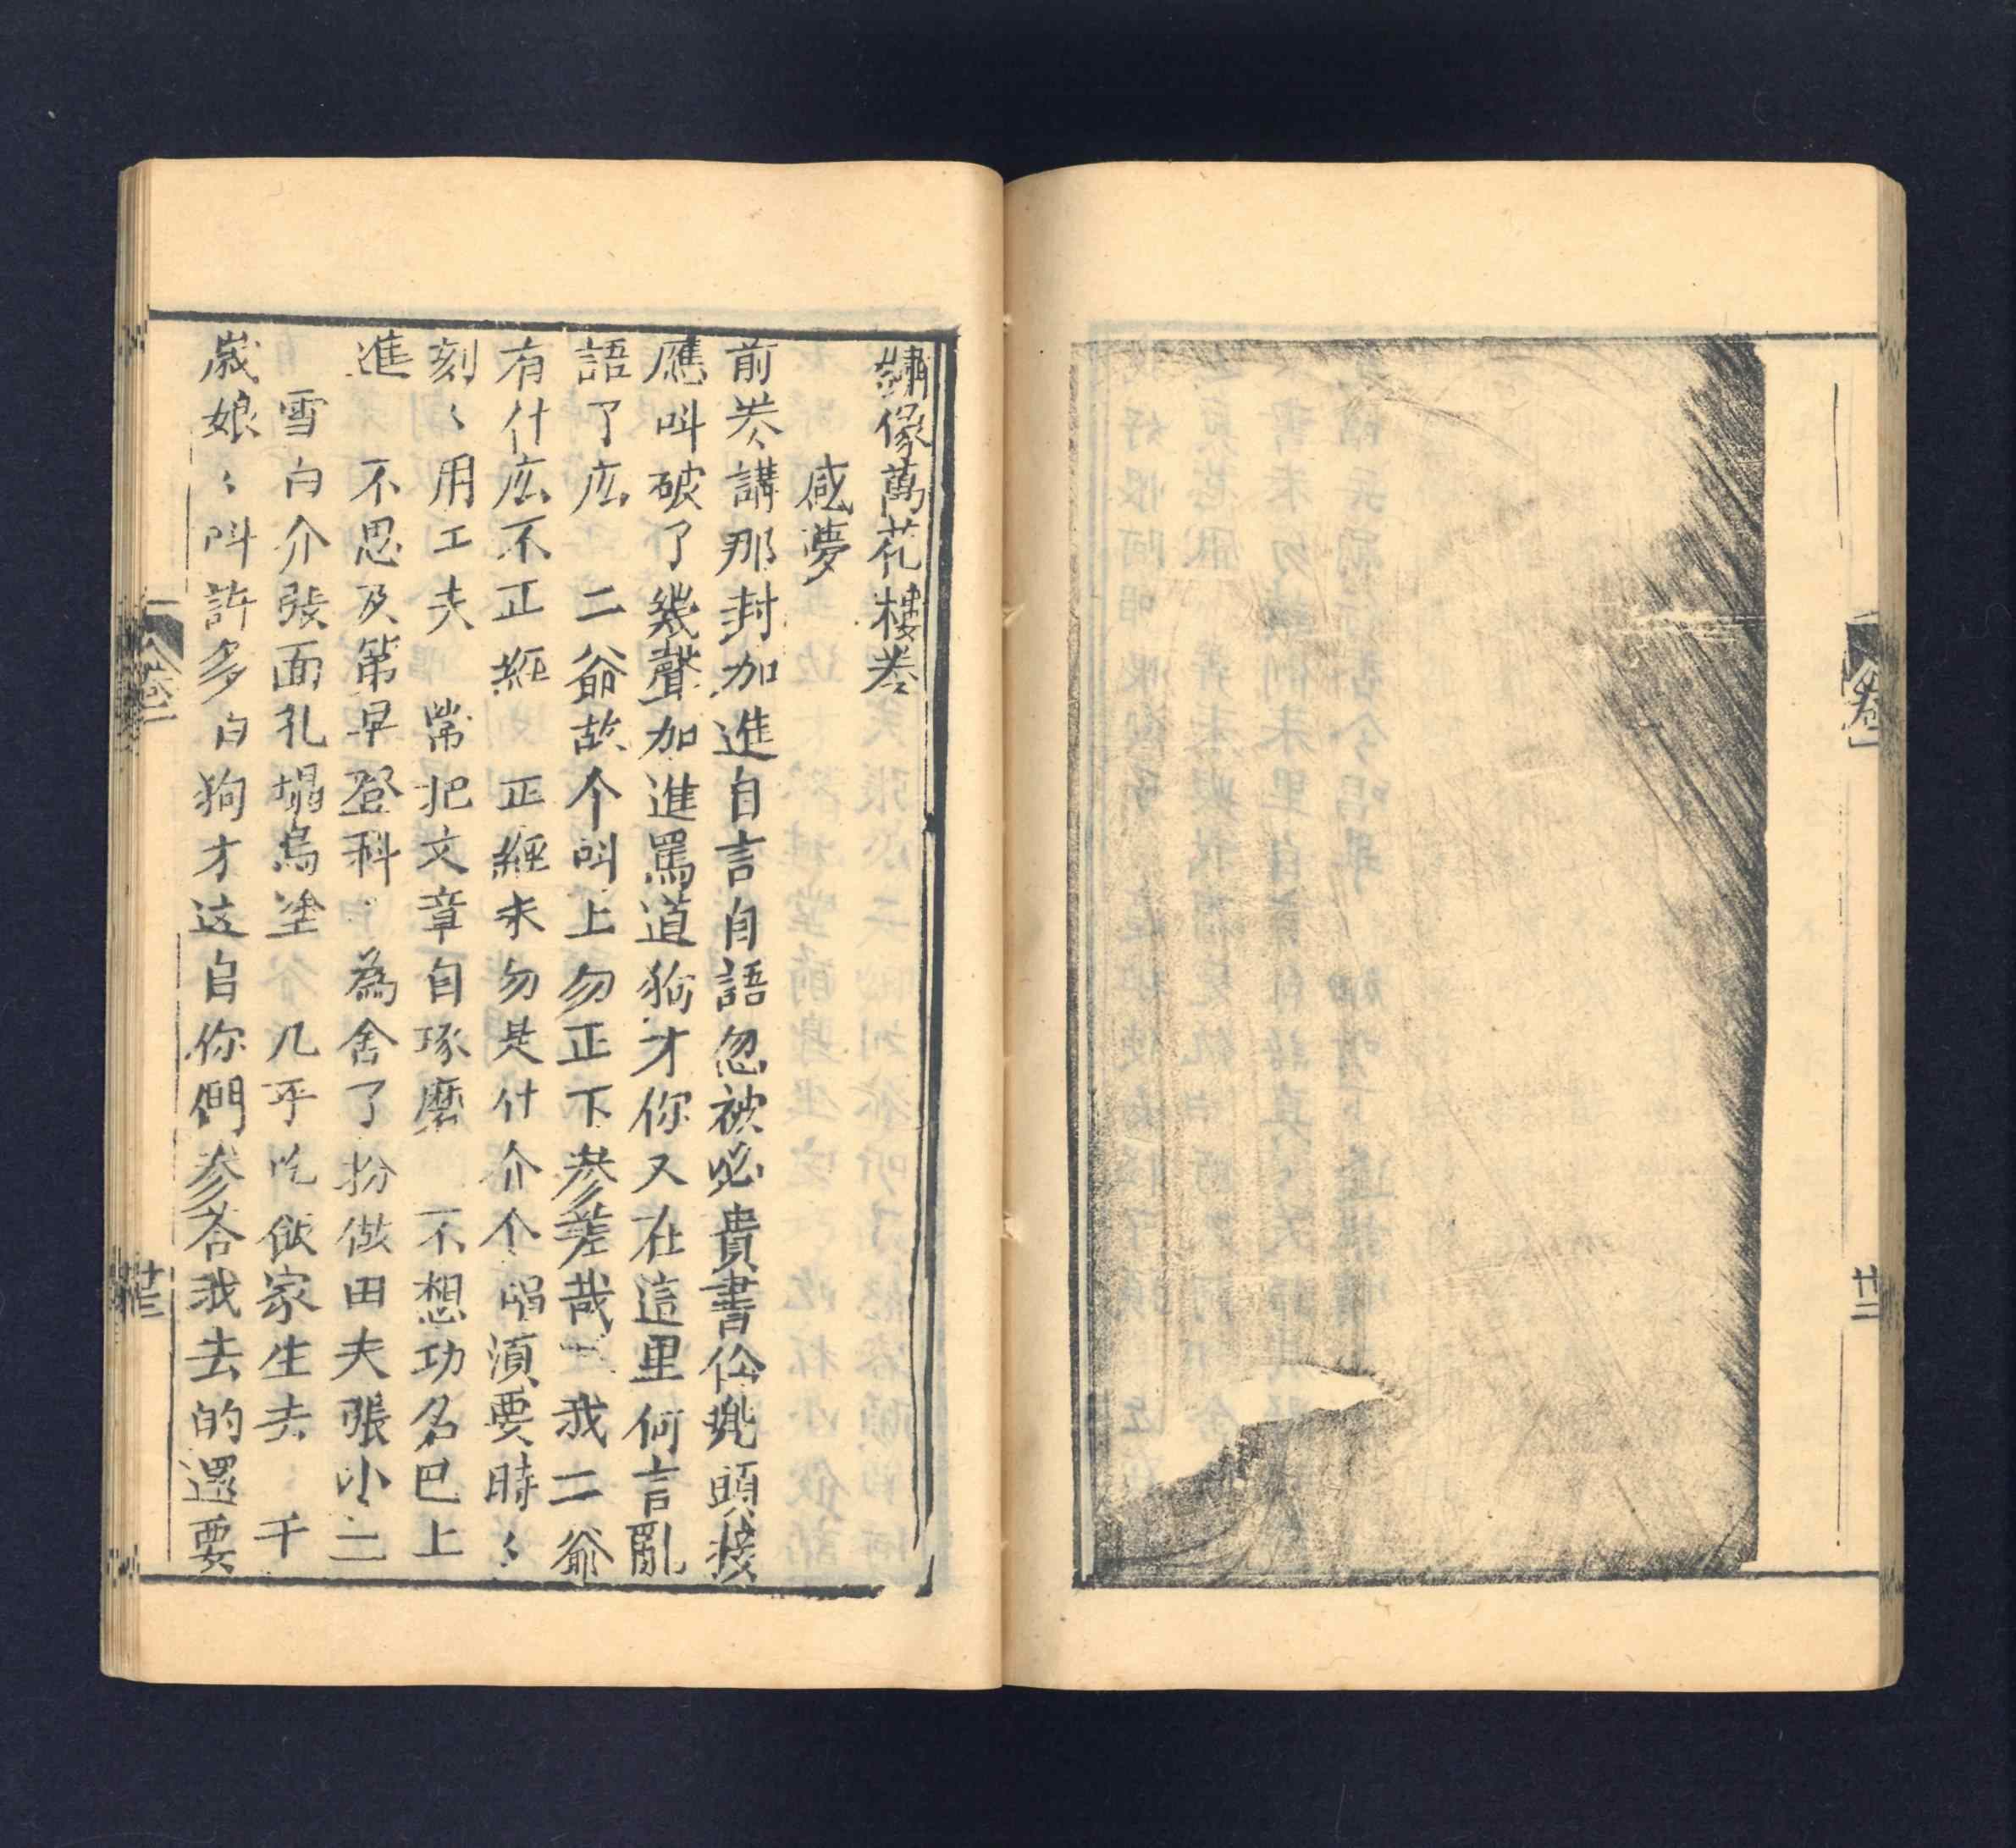 卷一
廿二
繡像萬花樓卷
感夢
前卷講那封加進自言自語忽被必貴書伱兠頭接
應叫破了幾聲加進罵道狗才你又在這里何言亂
語了広 二爺故个叫上勿正下參差哉 我二爺
有什広不正經 正經未勿是什介个 唱湏要時〻
刻〻用工夫 常把文章自琢磨 不想功名巴上
進 不思及第早登科 為舍了扮做田夫張小二
雪白介張面孔塌烏塗 几乎吃飯家生夫〻千
歲娘〻叫許多白狗才这自你們參答我去的還要
卷二
廿三